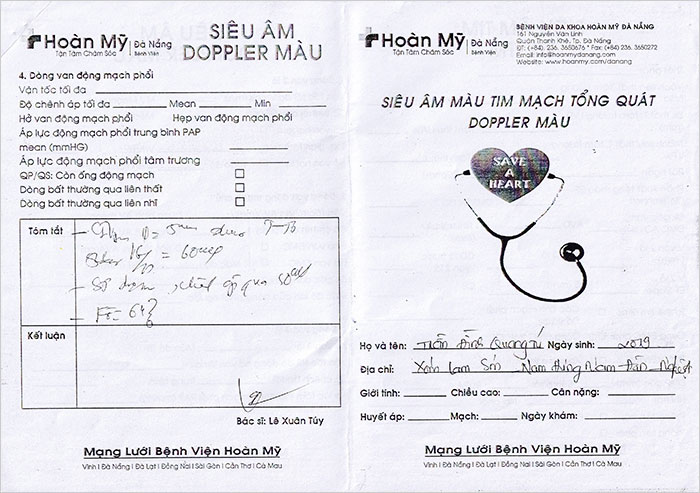 Hoàn Mỹ | Đà Nẵng
Tận Tâm Chăm Sóc Bệnh Viện
SIÊU ÂM
DOPPLER MÀU
4. Dòng van động mạch phổi
Vận tốc tối đa
Độ chênh áp tối đa Mean Min
Hở van động mạch phổi Hẹp van động mạch phổi
Áp lực động mạch phổi trung bình PAP
mean (mmHG)
Áp lực động mạch phổi tâm trương
QP/QS: Còn ống động mạch
Dòng bất thường qua liên thất
Dòng bất thường qua liên nhĩ
Tóm tắt
Kết luận
Bác sĩ: Lê Xuân Túy
Mạng Lưới Bệnh Viện Hoàn Mỹ
Vinh | Đà Nẵng | Đà Lạt | Đồng Nai | Sài Gòn | Cần Thơ | Cà Mau
Hoàn Mỹ | Đà Nẵng
Tận Tâm Chăm Sóc Bệnh Viện
BỆNH VIỆN ĐA KHOA HOÀN MỸ ĐÀ NẴNG
161 Nguyễn Văn Linh
Quận Thanh Khê, Tp. Đà Nẵng
ĐT: (+84). 236. 3650676 * Fax: (+84). 236. 3650272
Email: info@hoanmydanang.com
Website: www.hoanmy.com/danang
SIÊU ÂM MÀU TIM MẠCH TỔNG QUÁT
DOPPLER MÀU
SAVE
A
HEART
Họ và tên: Trần Đình Quang Tú Ngày sinh: 2019
Địa chỉ: Xóm Lam Sơn Nam Hưng Nam Đàn Nghệ
Giới tính: Chiều cao: Cân nặng:
Huyết áp: Mạch: Ngày khám:
Mạng Lưới Bệnh Viện Hoàn Mỹ
Vinh | Đà Nẵng | Đà Lạt | Đồng Nai | Sài Gòn | Cần Thơ | Cà Mau